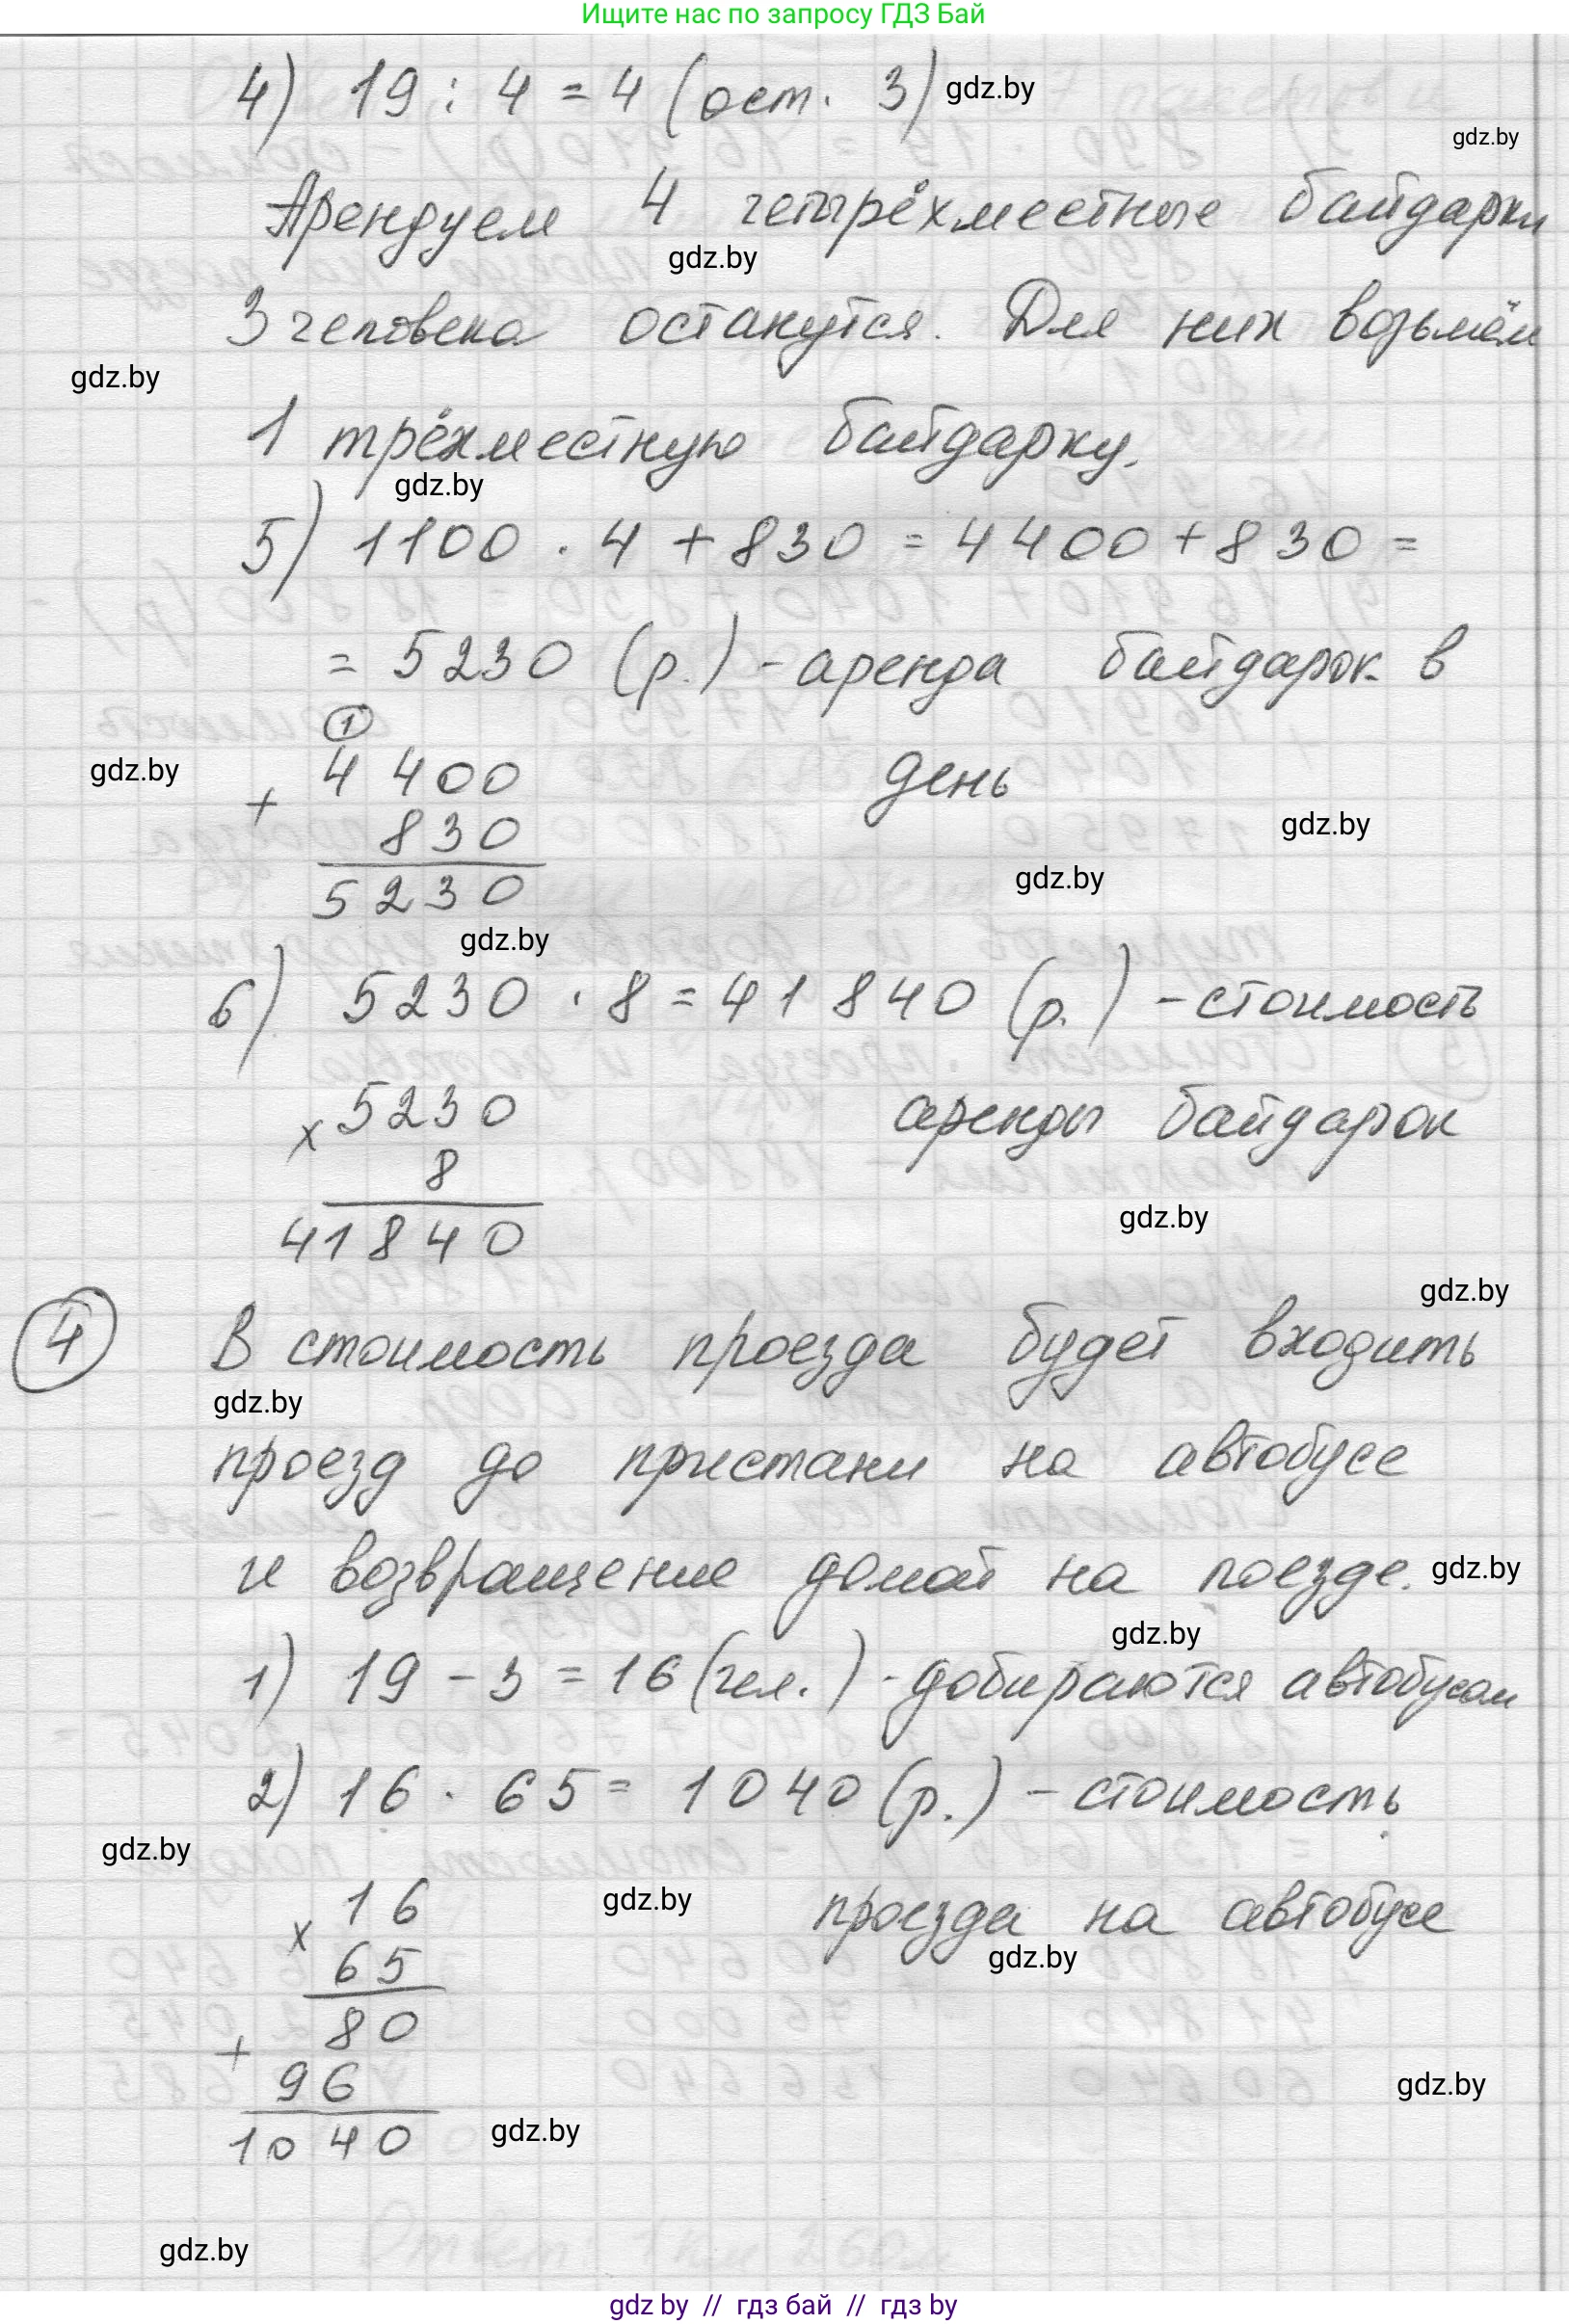 Ищите нас по запросу ГДЗ Бай
4) 19 : 4 = 4 (ост. 3) gdz.by
gdz.by
Арендуем 4 четырёхместные байдарки
gdz.by
3 человека останутся. Для них возьмём
gdz.by
1 трёхместную байдарку.
gdz.by
5) 1100 · 4 + 830 = 4400 + 830 =
= 5230 (р.) - аренда байдарок в
1
gdz.by
+ 4400 день
830
gdz.by
5230
gdz.by
gdz.by
6) 5230 · 8 = 41 840 (р.) - стоимость
x 5230 аренды байдарок
8
gdz.by
41840
gdz.by
4 В стоимость проезда будет входить
gdz.by
проезд до пристани на автобусе
и возвращение домой на поезде. gdz.by
gdz.by
1) 19 - 3 = 16 (чел.) - добираются автобусом
2) 16 · 65 = 1040 (р.) - стоимость
gdz.by
x 16 gdz.by проезда на автобусе
65 gdz.by
80
+
96 gdz.by
1040 gdz.by
gdz.by
gdz by // гдз бай // гдз by